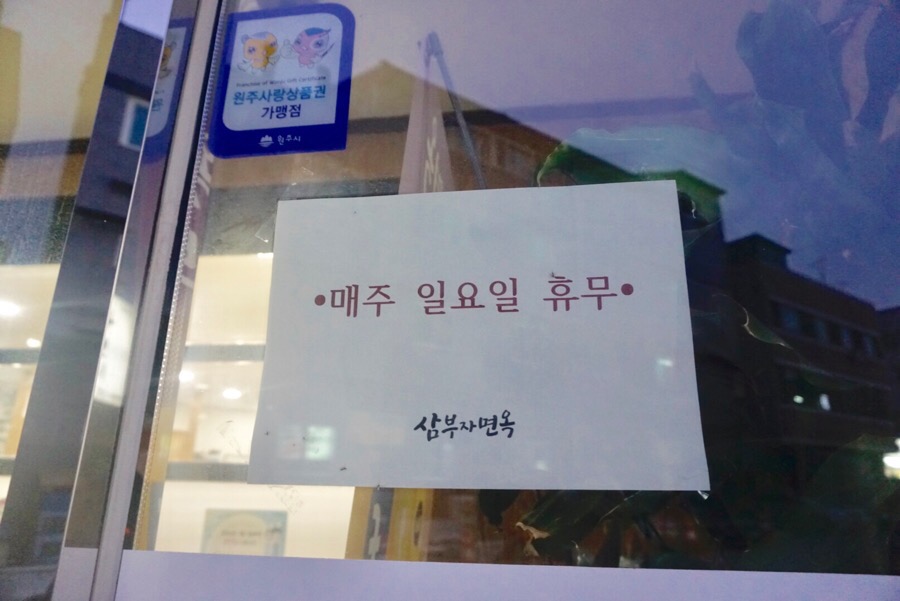 원주사랑상품권
가맹점
원주시
•매주 일요일 휴무•
삼부자면옥